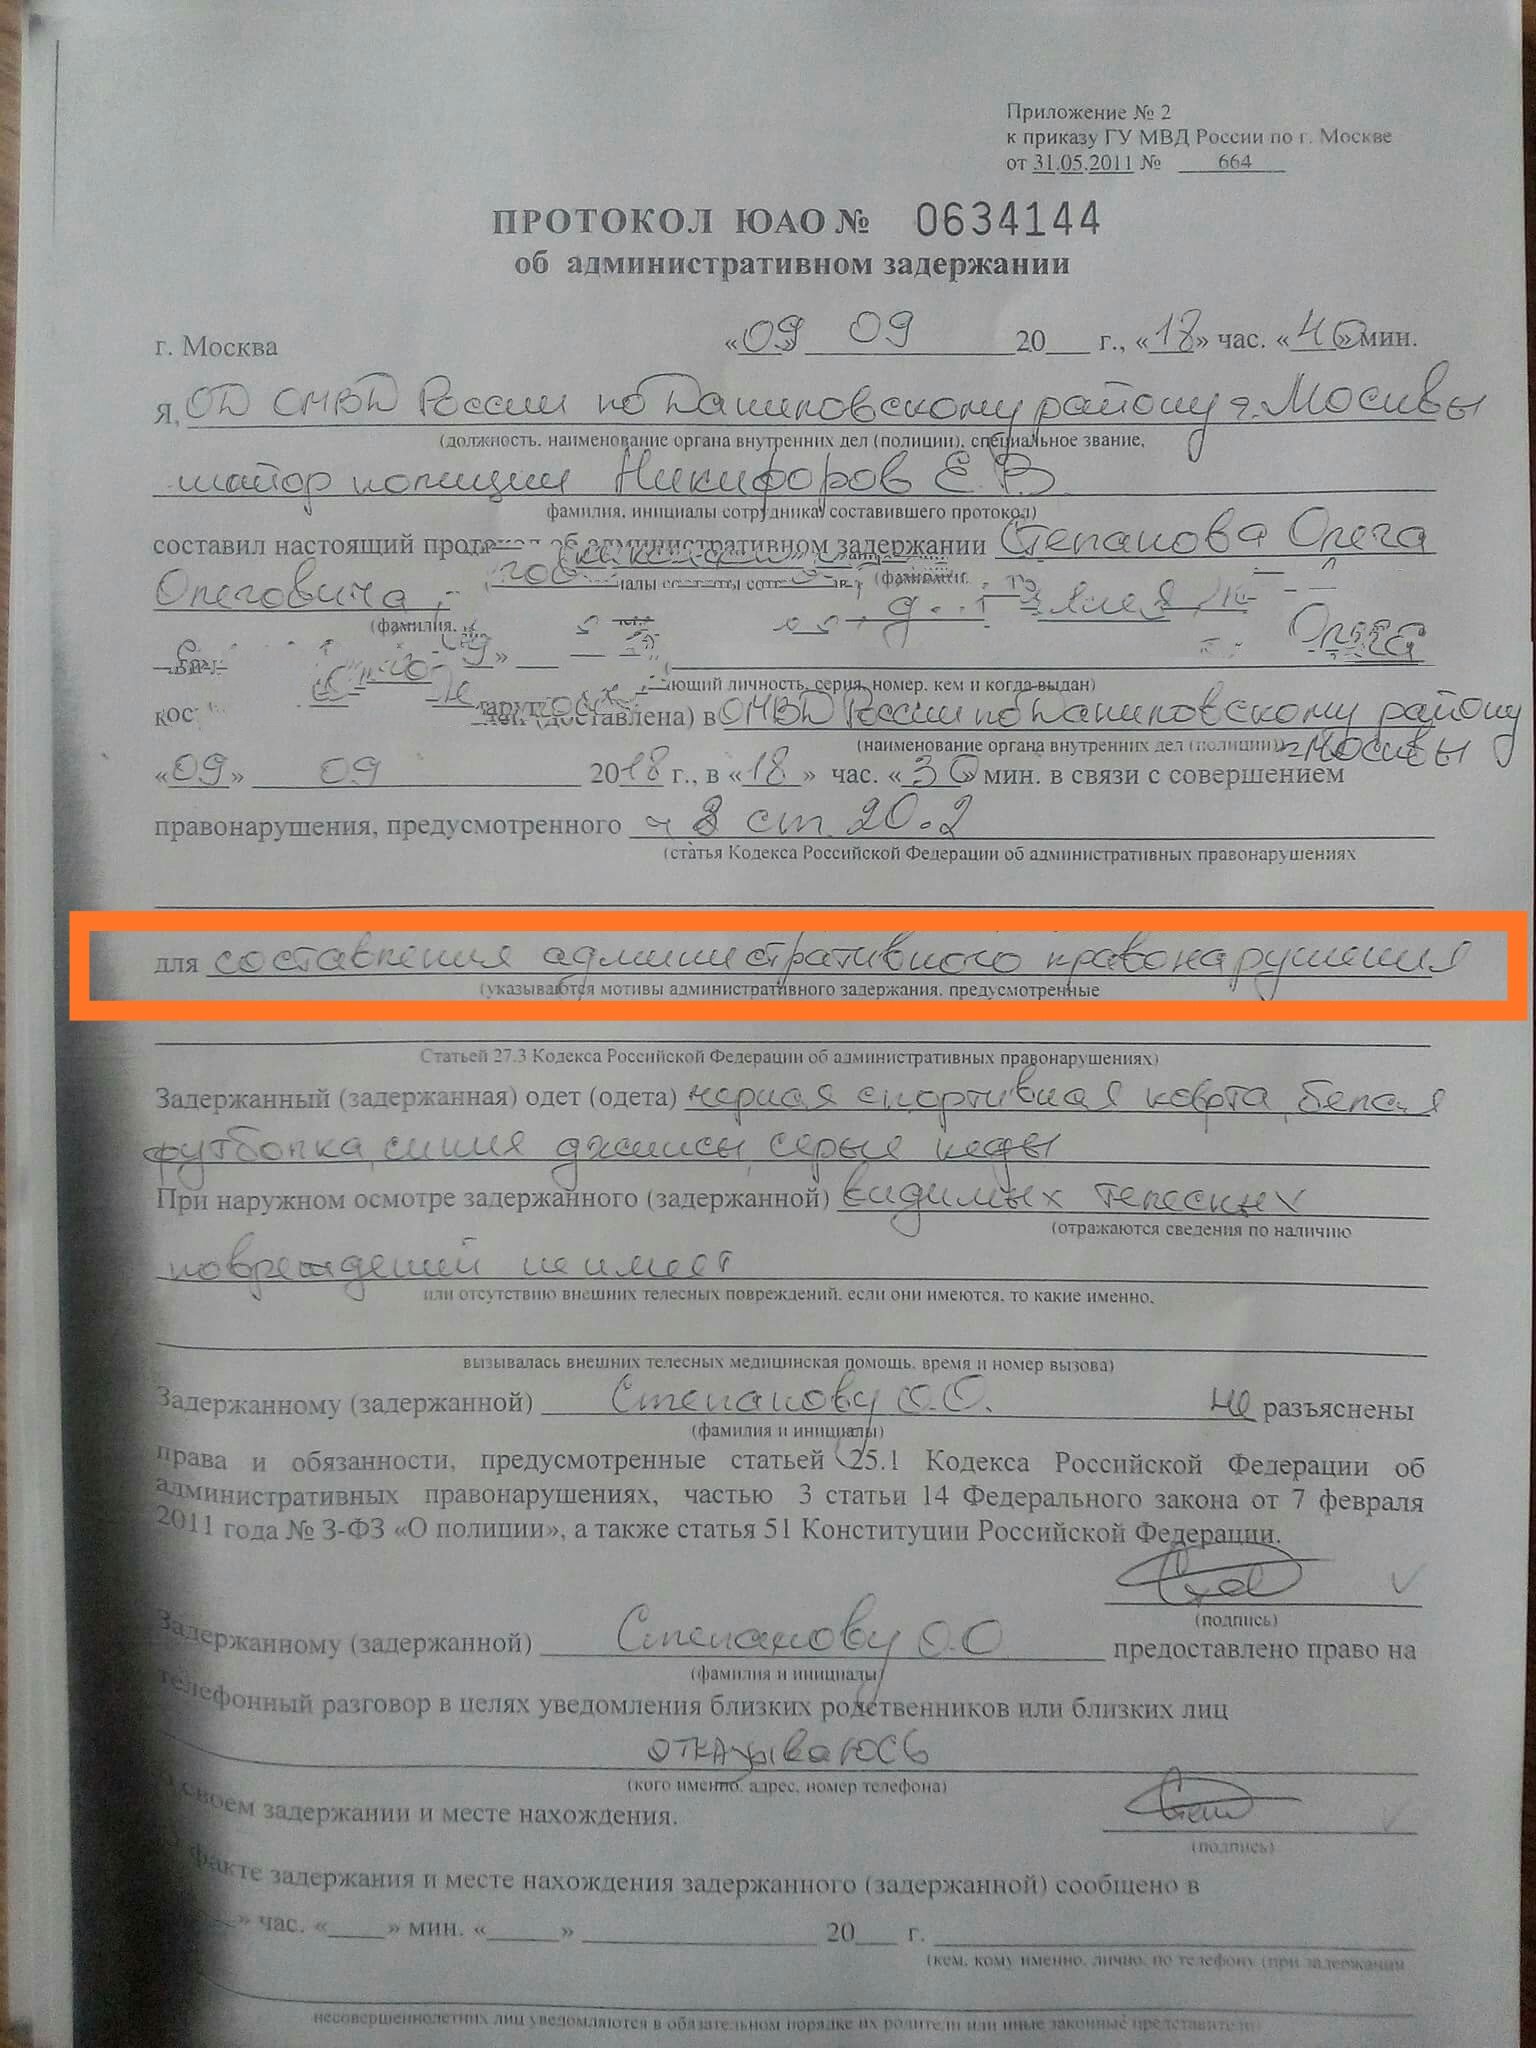 Приложение № 2
к приказу ГУ МВД России по г. Москве
от 31.05.2011 № 664
ПРОТОКОЛ ЮАО № 0634144
об административном задержании
г. Москва «09» 09 20___ г., «18» час. «40» мин.
Я, ОД ОМВД России по Даниловскому району г. Москвы
(должность, наименование органа внутренних дел (полиции), специальное звание,
майор полиции Никифоров Е.В.
фамилия, инициалы сотрудника, составившего протокол)
составил настоящий протокол об административном задержании Степанова Олега
Олеговича,
(фамилия,
Олега
ющий личность, серия, номер, кем и когда выдан)
(доставлена) в ОМВД России по Даниловскому району
(наименование органа внутренних дел (полиции)) г. Москвы
«09» 09 2018 г., в «18» час. «30» мин. в связи с совершением
правонарушения, предусмотренного ч 8 ст. 20.2
(статья Кодекса Российской Федерации об административных правонарушениях
для составления административного правонарушения
(указываются мотивы административного задержания, предусмотренные
Статьей 27.3 Кодекса Российской Федерации об административных правонарушениях)
Задержанный (задержанная) одет (одета) черная спортивная кофта, белая
футболка, синия джинсы, серые кеды
При наружном осмотре задержанного (задержанной) видимых телесных
(отражаются сведения по наличию
повреждений не имеет
или отсутствию внешних телесных повреждений, если они имеются, то какие именно,
вызывалась внешних телесных медицинская помощь, время и номер вызова)
Задержанному (задержанной) Степанову О.О. не разъяснены
(фамилия и инициалы)
права и обязанности, предусмотренные статьей 25.1 Кодекса Российской Федерации об
административных правонарушениях, частью 3 статьи 14 Федерального закона от 7 февраля
2011 года № 3-ФЗ «О полиции», а также статья 51 Конституции Российской Федерации.
(подпись)
Задержанному (задержанной) Степанову О.О. предоставлено право на
(фамилия и инициалы)
телефонный разговор в целях уведомления близких родственников или близких лиц
отказываюсь
(кого именно, адрес, номер телефона)
о своем задержании и месте нахождения.
(подпись)
О факте задержания и месте нахождения задержанного (задержанной) сообщено в
» час. «____» мин. «_____» ______________ 20___ г.
(кем, кому именно, лично, по телефону (при задержании
несовершеннолетних лиц уведомляются в обязательном порядке их родители или иные законные представители)